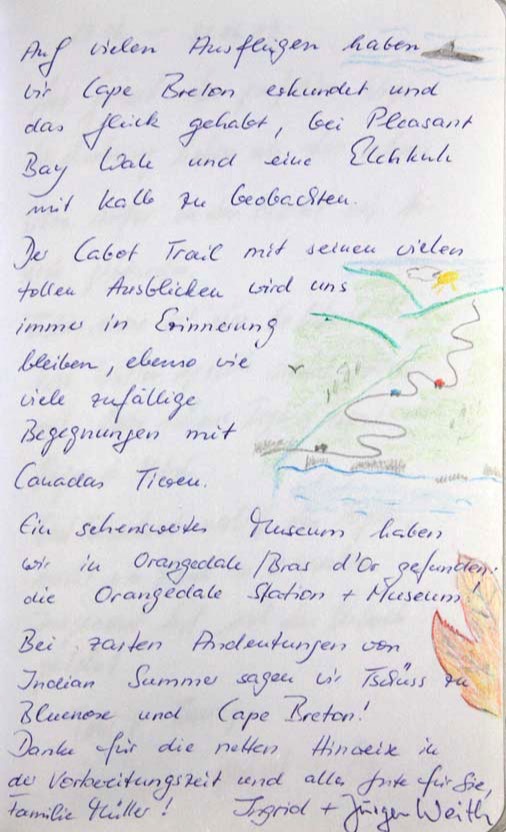 Auf vielen Ausflügen haben
wir Cape Breton erkundet und
das Glück gehabt, bei Pleasant
Bay Wale und eine Elchkuh
mit Kalb zu beobachten.
Der Cabot Trail mit seinen vielen
tollen Ausblicken wird uns
immer in Erinnerung
bleiben, ebenso wie
viele zufällige
Begegnungen mit
Canadas Tieren.
Ein sehenswertes Museum haben
wir in Orangedale / Bras d'Or gefunden:
die Orangedale Station + Museum
Bei zarten Andeutungen von
Indian Summer sagen wir Tschüss zu
Bluenose und Cape Breton!
Danke für die netten Hinweise in
der Vorbereitungszeit und alles Gute für Sie,
Familie Müller! Ingrid + Jürgen Weith